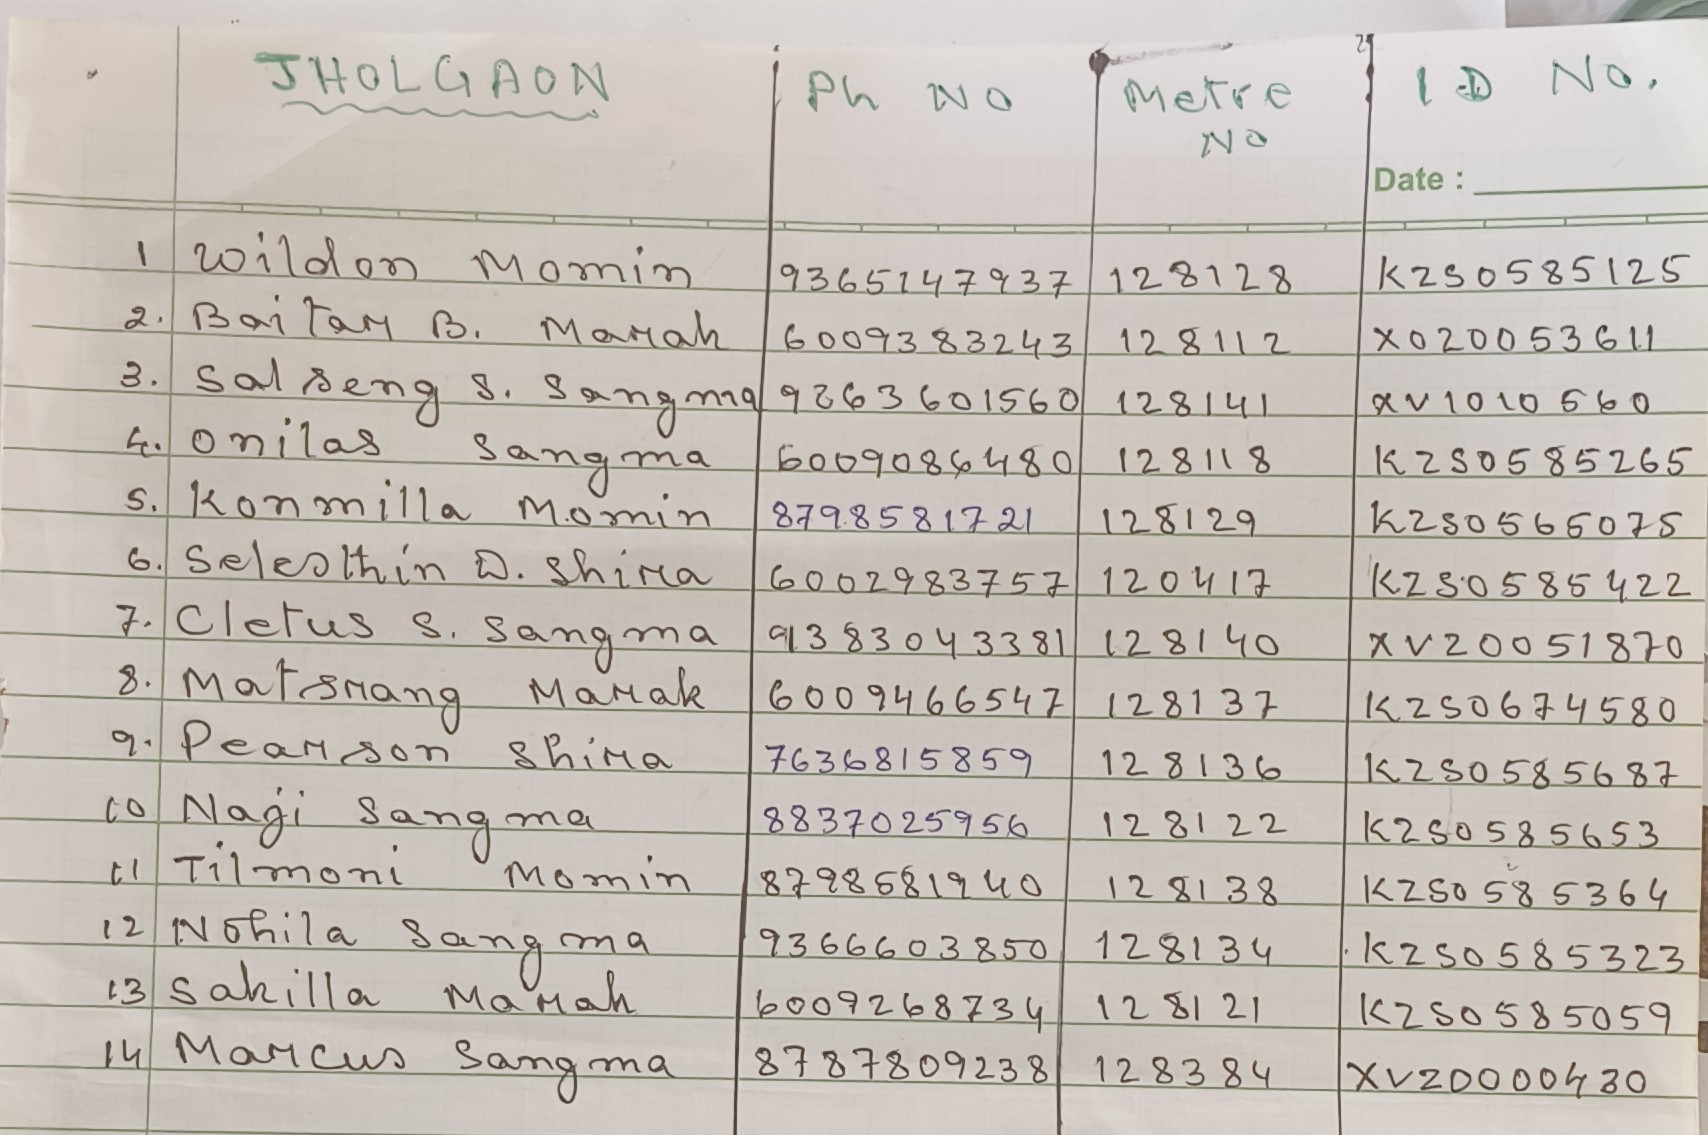 JHOLGAON Ph NO Metre NO ID NO.
Date :
1 Wildon Momin 9365147937 128128 KZS0585125
2. Baitar B. Marak 6009383243 128112 XO20053611
3. Salseng S. Sangma 9863601560 128141 XV1010560
4. Onilas Sangma 6009086480 128118 KZS0585265
5. Konmilla Momin 8798581721 128129 KZS0565075
6. Selesthin D. Shira 6002983757 120417 KZS0585422
7. Cletus S. Sangma 9138304 3381 128140 XVZ0051870
8. Matsrang Marak 6009466547 128137 KZS0674580
9. Pearson Shira 7636815859 128136 KZS0585687
10 Naji Sangma 8837025956 128122 KZS0585653
11 Tilmoni Momin 8798581940 128138 KZS0585364
12 Nohila Sangma 9366603850 128134 KZS0585323
13 Sakilla Marak 6009268734 128121 KZS0585059
14 Marcus Sangma 8787809238 128384 XVZ0000430